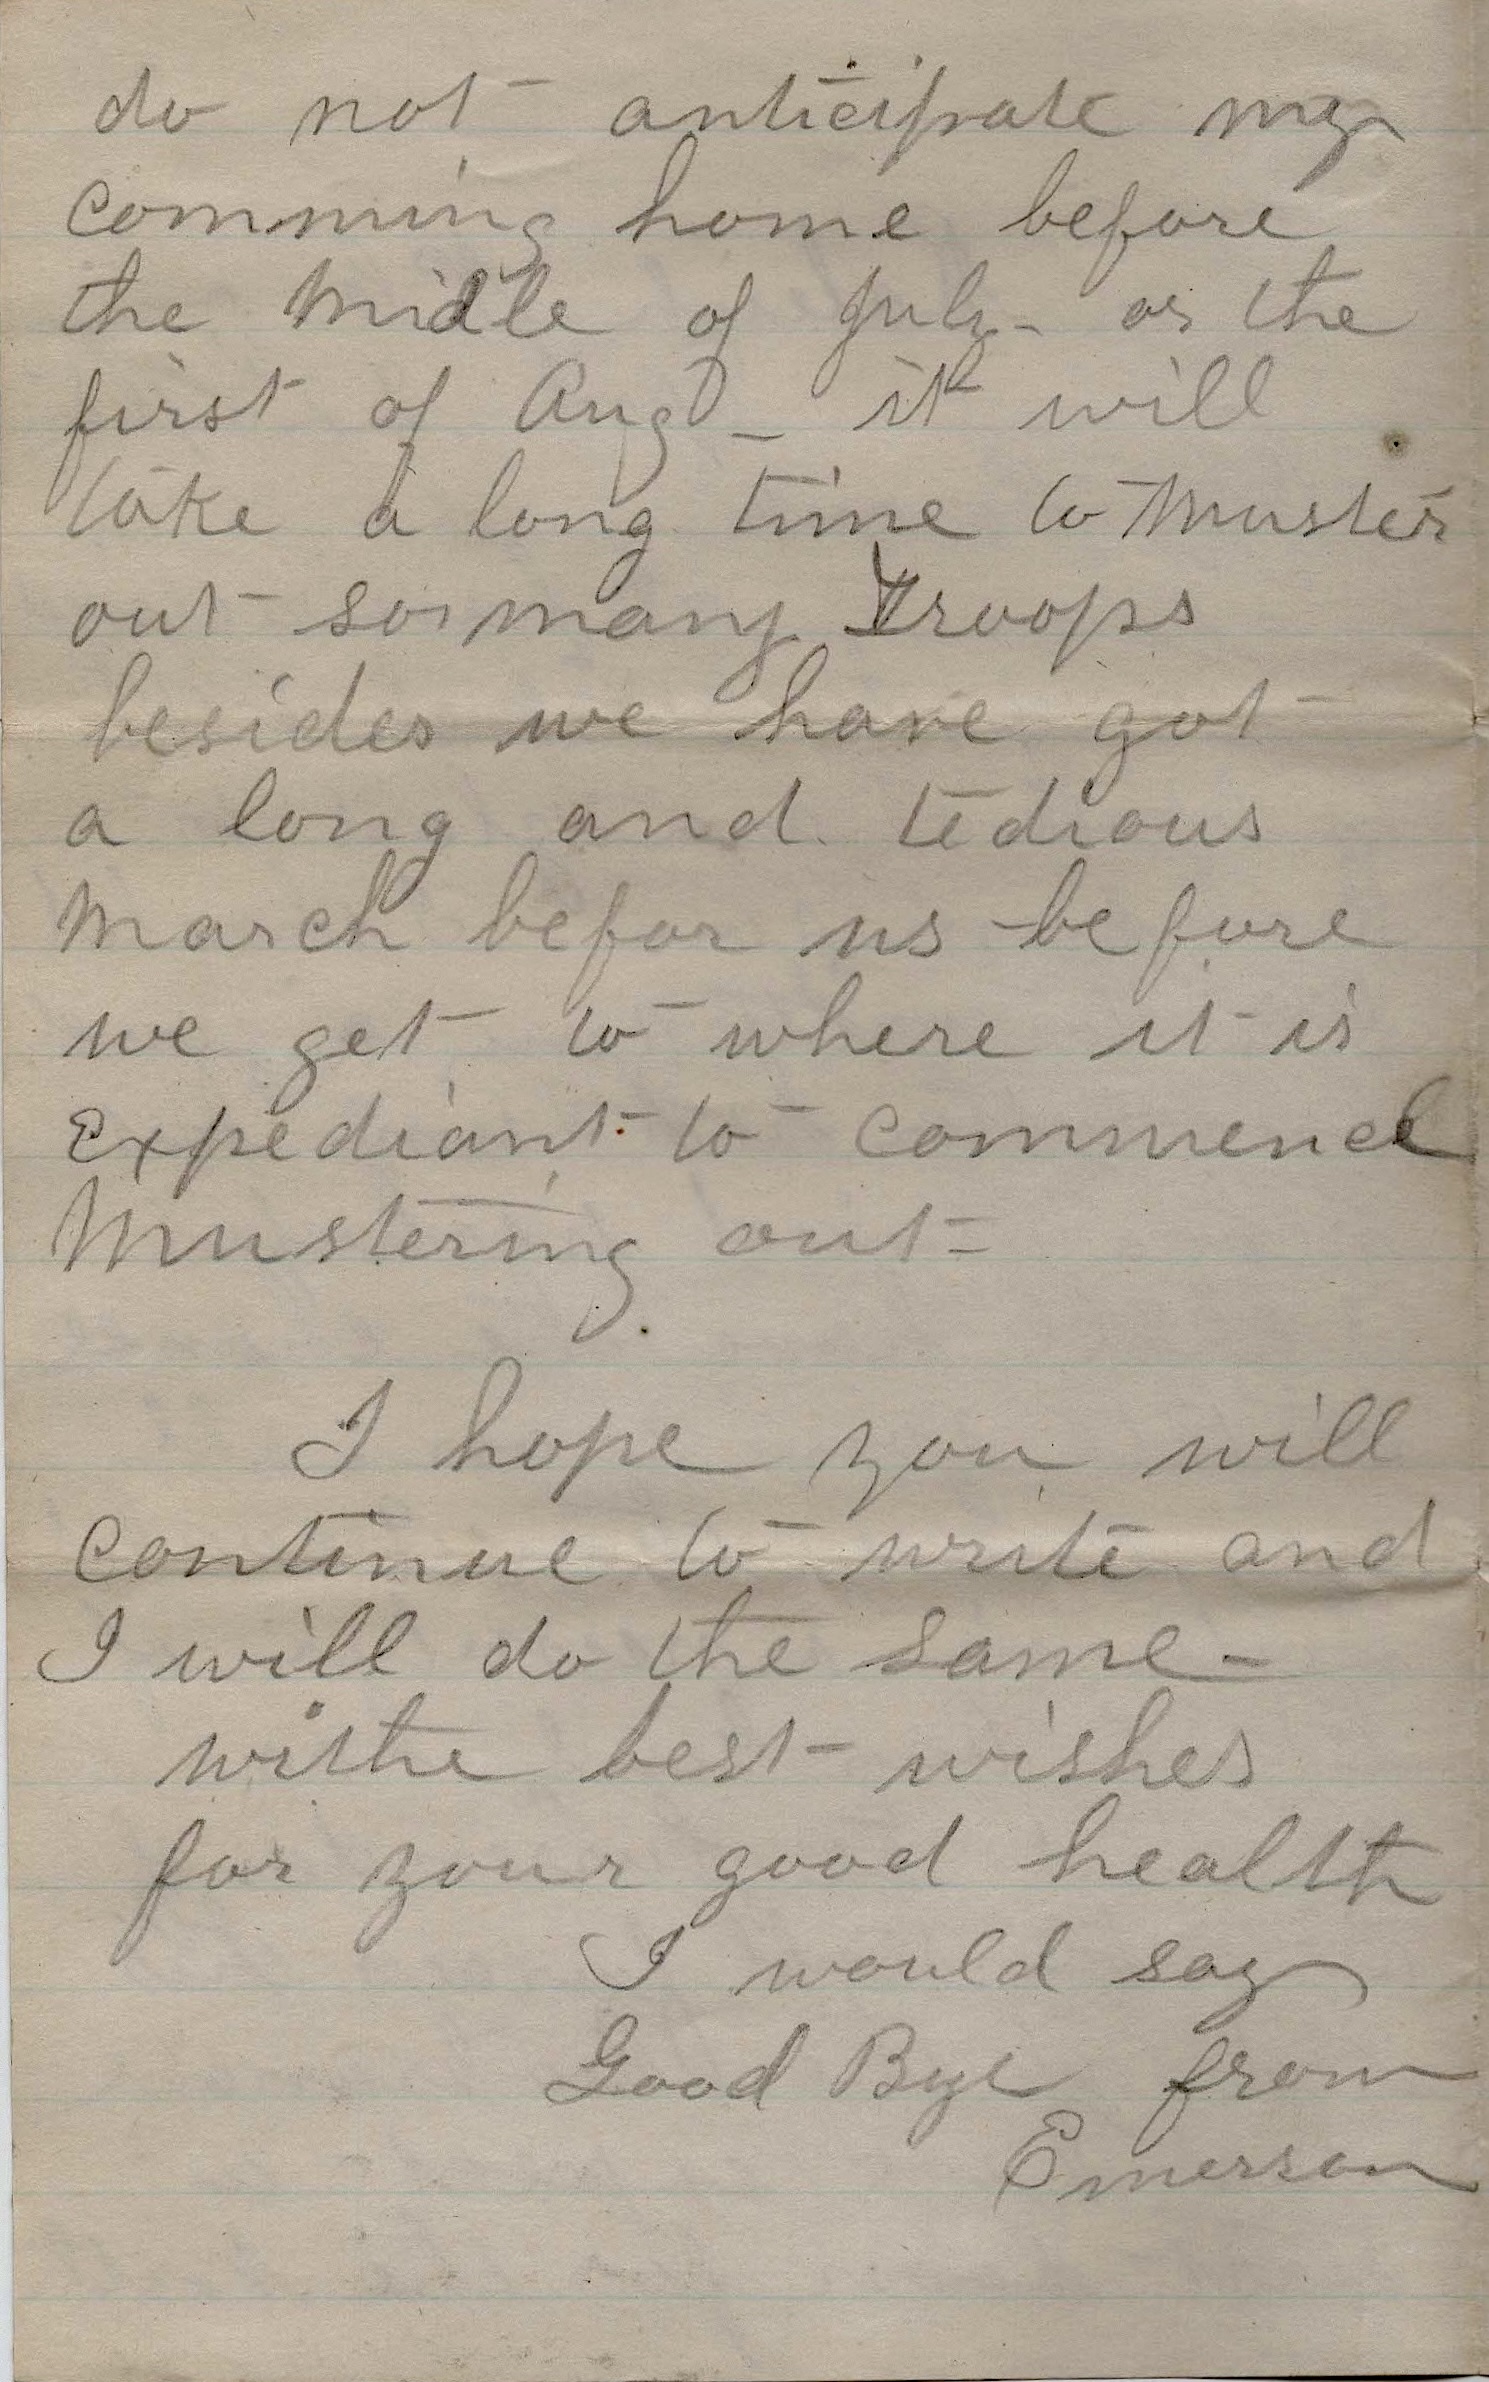 do not anticipate my
comming home before
the Midle of July - or the
first of Aug - it will
take a long time to Muster
out so many troops
besides we have got
a long and tedious
March befor us before
we get to where it is
Expediant to commence
Mustering out -
I hope you will
continue to write and
I will do the same -
withe best wishes
for your good health
I would say
Good Bye from
Emerson